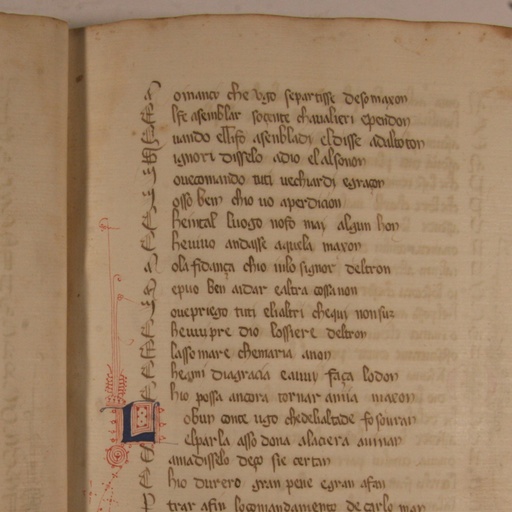 omancr che vgo separtisse desomaxon
lfe asemblar soçente chavalieri ependon
uando ellifo asenbladi eldisse adaltoton
ignori disselo adio el alsonon
ovecomando tuti vechiardi egraçon
osso ben chio uo aperdicion
heintal luogo noso may algun hon
hevuuo andasse aquela maxon
ola fidança chio inlo signor deltron
epuo ben aidar ealtra cossa non
ovepriego tuti elialtri chequi non suz
hevuupre dio lossiere deltron
lasso mare chemaria anon
hegni diagracia eauuy faça lo don
hio possa ancora tornar amia maxon
Lo bun conte vgo chedelialtade fo souran
elparla asso dona alaciera auinan
ama disselo deço sie certan
hio durero gran pene egran afan
trar afin locomandamento de carlo man